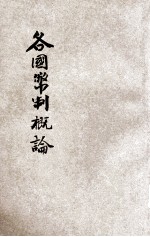 各國幣制概論